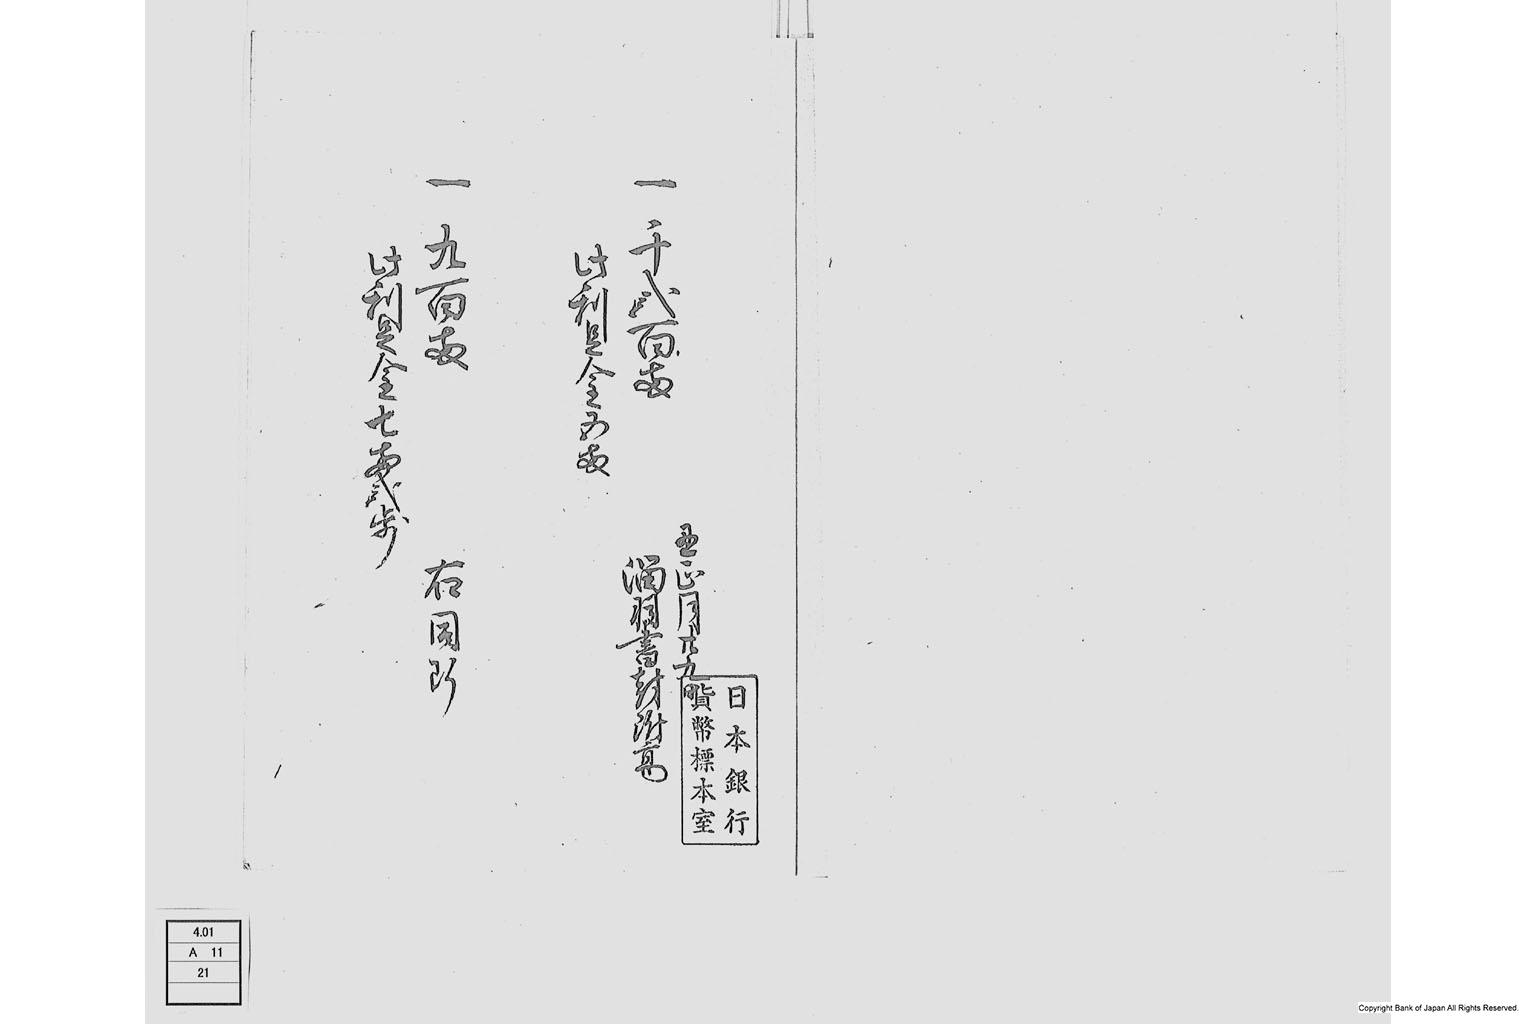 一 千弐百両
丑正月廿九
書封附高
此利足金五両
一 九百両
右同所
此利足金七両弐歩
日本銀行
貨幣標本室
4.01
A 11
21
Copyright Bank of Japan All Rights Reserved.